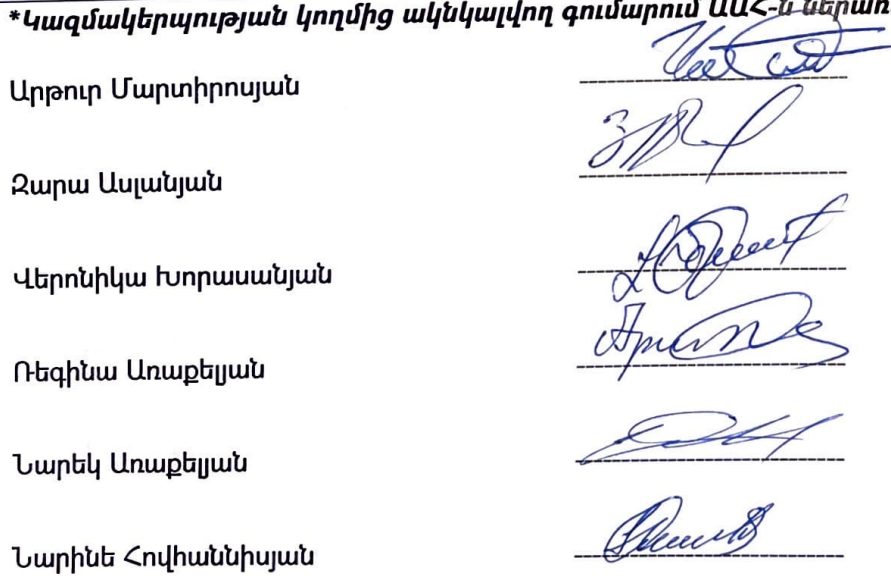 *Կազմակերպության կողմից ակնկալվող գումարում ԱԱՀ-ն ներառ
Արթուր Մարտիրոսյան
Զարա Ասլանյան
Վերոնիկա Խորասանյան
Ռեգինա Առաքելյան
Նարեկ Առաքելյան
Նարինե Հովհաննիսյան